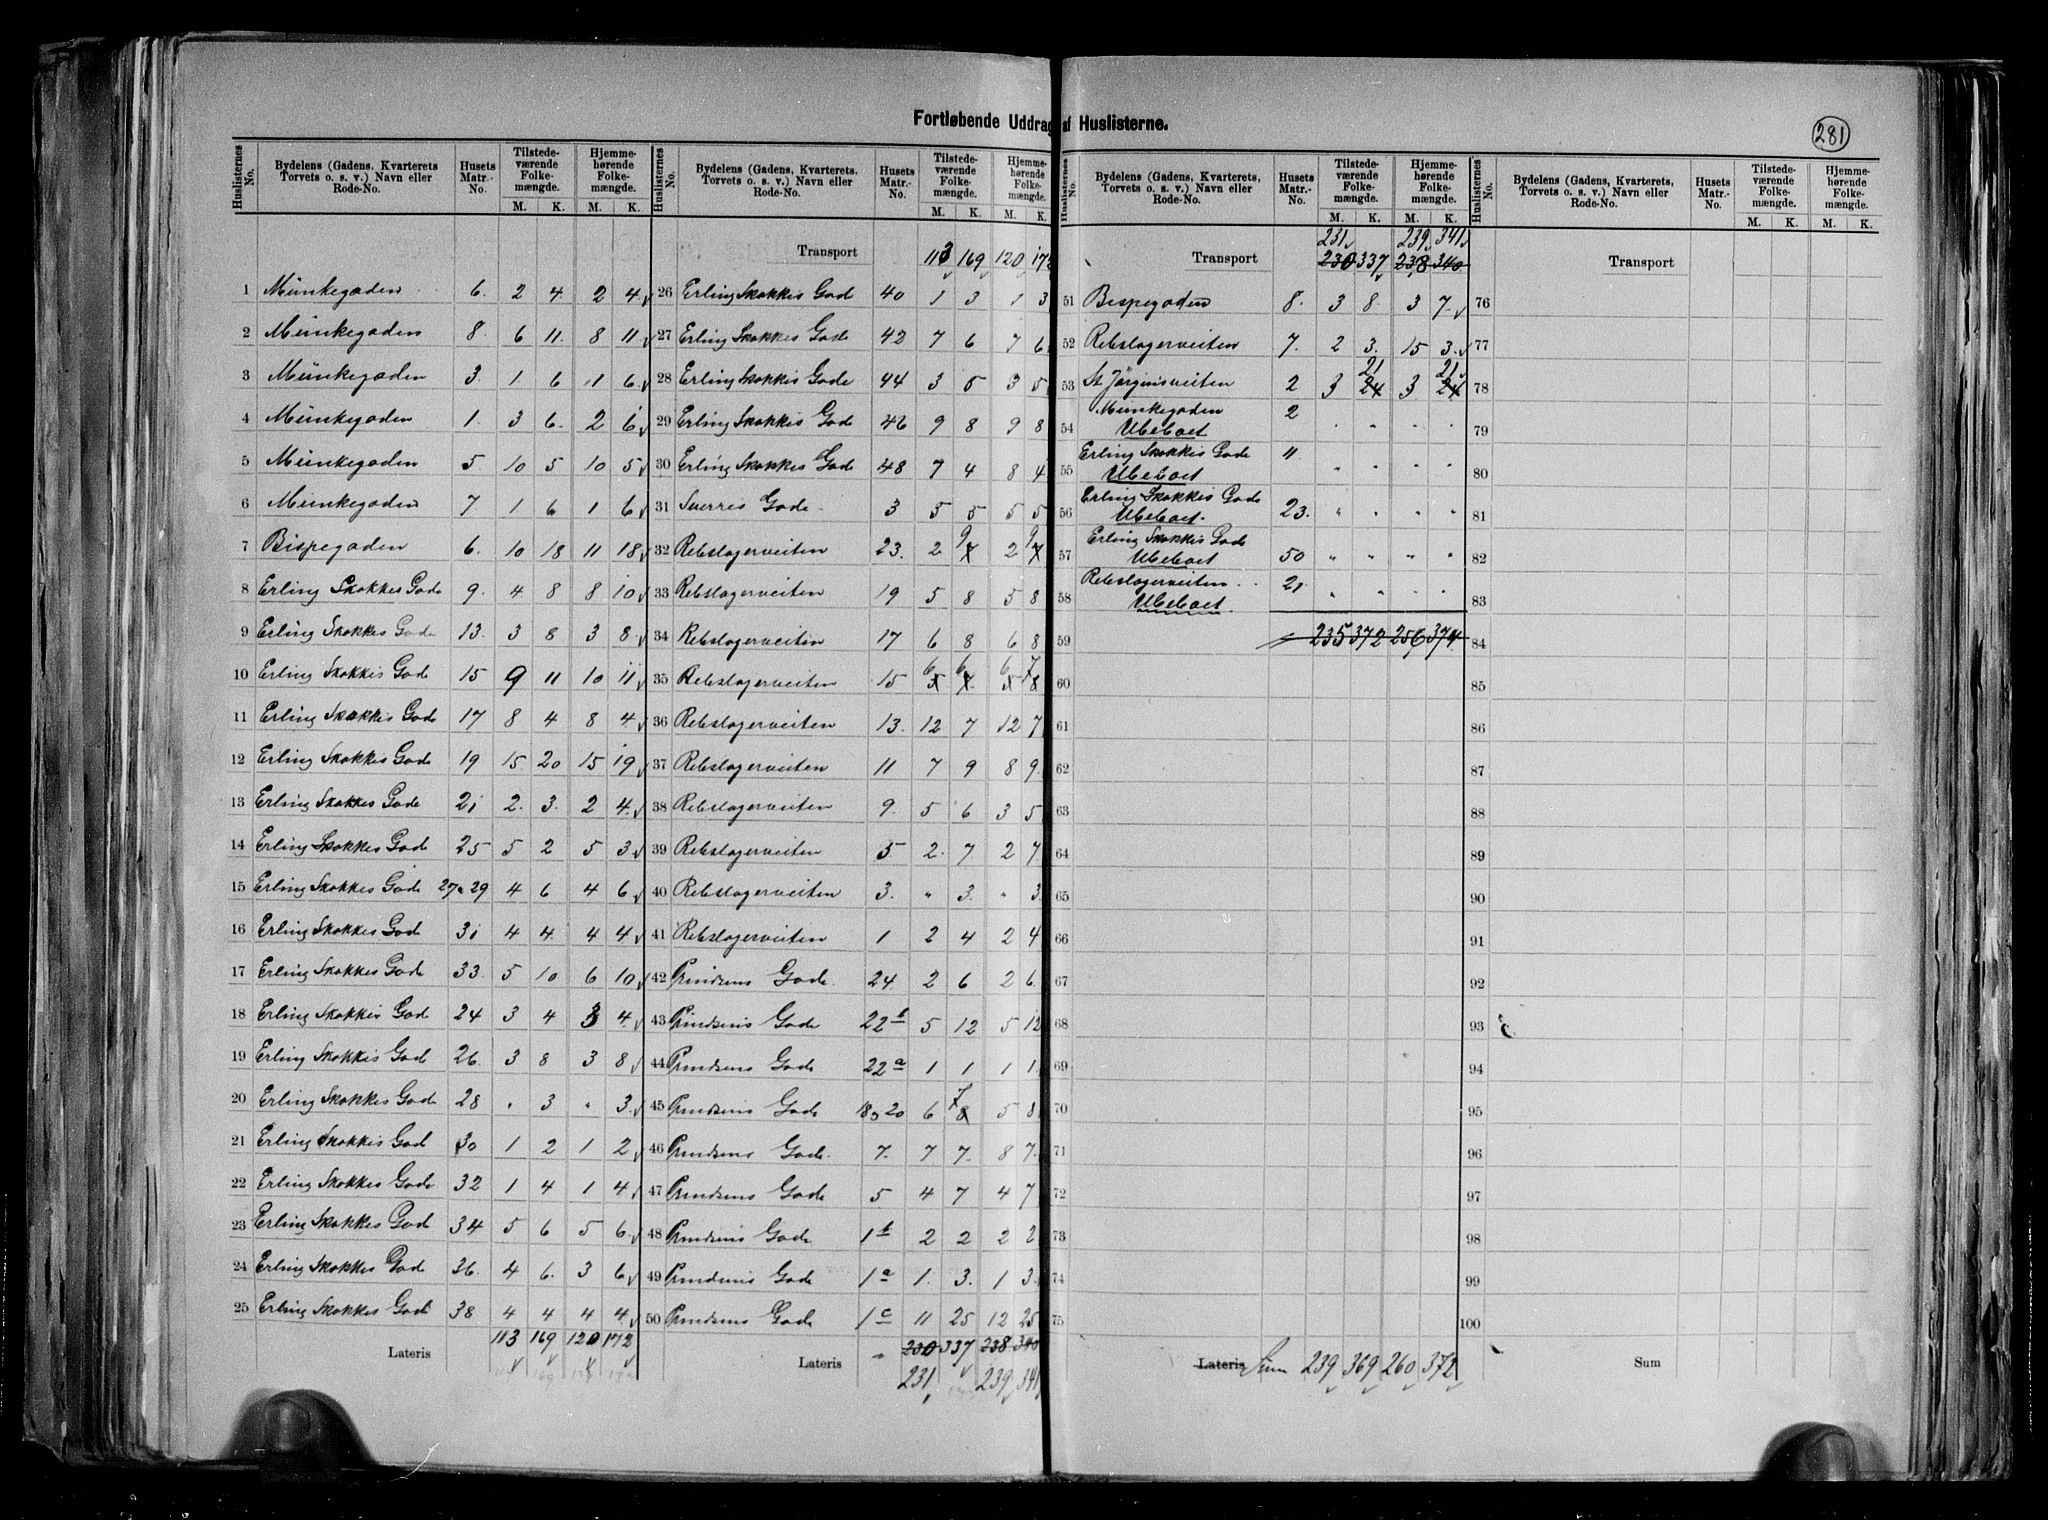 Fortløbende Uddrag af Huslisterne.
281
Huslisternes No. Bydelens (Gadens, Kvarterets Torvets o. s. v.) Navn eller Rode-No. Husets Matr.-No. Tilstedeværende Folkemængde. M. K. Hjemmehørende Folkemængde. M. K.
1 Munkegaden 6. 2 4. 2 4
2 Munkegaden 8. 6 11. 8 11
3 Munkegaden 3. 1 6 1 6
4 Munkegaden 1. 3 6. 2 6
5 Munkegaden 5 10 5 10 5
6 Munkegaden 7 1 6 1 6
7 Bispegaden 6. 10 18 11 18
8 Erling Skakkes Gade 9. 4 8 8 10
9 Erling Skakkes Gade 13. 3 8 3 8
10 Erling Skakkes Gade 15 9 11 10 11
11 Erling Skakkes Gade 17 8 4 8 4
12 Erling Skakkes Gade 19 15 20 15 19
13 Erling Skakkes Gade 21 2. 3. 2 4
14 Erling Skakkes Gade 25 5 2 5 3
15 Erling Skakkes Gade 27 29 4 6 4 6
16 Erling Skakkes Gade 31 4 4 4 4
17 Erling Skakkes Gade 33. 5 10 6 10
18 Erling Skakkes Gade 24 3 4 3 4
19 Erling Skakkes Gade 26. 3 8 3 8
20 Erling Skakkes Gade 28 " 3 " 3
21 Erling Skakkes Gade 30 1 2 1 2
22 Erling Skakkes Gade 32 1 4 1 4
23 Erling Skakkes Gade 34 5 6 5 6
24 Erling Skakkes Gade 36. 4 6. 3 6
25 Erling Skakkes Gade 38 4 4 4 4
Lateris 113 169 120 172
Huslisternes No. Bydelens (Gadens, Kvarterets, Torvets o. s. v.) Navn eller Rode-No. Husets Matr.-No. Tilstedeværende Folkemængde. M. K. Hjemmehørende Folkemængde. M. K.
Transport 113 169 120 172
26 Erling Skakkes Gade 40 1 3 1 3
27 Erling Skakkes Gade 42 7 6 7 6
28 Erling Skakkes Gade 44 3 5 3 5
29 Erling Skakkes Gade 46 9 8 9 8
30 Erling Skakkes Gade 48 7 4 8 4
31 Sverres Gade 3 5 5 5 5
9 9
32 Rebslagerveiten 23. 2 7 2 7
33 Rebslagerveiten 19 5 8 5 8
34 Rebslagerveiten 17 6 8 6 8
6 6 6 7
35 Rebslagerveiten 15 5 7 5 8
36 Rebslagerveiten 13. 12 7 12 7
37 Rebslagerveiten 11 7 9 8 9
38 Rebslagerveiten 9. 5 6 3 5
39 Rebslagerveiten 5 2. 7 2 7
40 Rebslagerveiten 3. " 3. " 3
41 Rebslagerveiten 1 2 4 2 4
42 Prindsens Gade 24 2 6 2 6
43 Prindsens Gade 22 b 5 12 5 12
44 Prindsens Gade 22 a 1 1 1 1
7
45 Prindsens Gade 18 20 6 8 5 8
46 Prindsens Gade 7. 7 7. 8 7
47 Prindsens Gade 5 4 7 4 7
48 Prindsens Gade 1 b 2 2 2 2
49 Prindsens Gade 1 a 1. 3. 1 3
50 Prindsens Gade 1 c 11 25 12 25
Lateris 230 337 238 340
231 239 341
Huslisternes No. Bydelens (Gadens, Kvarterets, Torvets o. s. v.) Navn eller Rode-No. Husets Matr.-No. Tilstedeværende Folkemængde. M. K. Hjemmehørende Folkemængde. M. K.
231 239 341
Transport 230 337 238 340
51 Bispegaden 8. 3 8 3 7
52 Rebslagerveiten 7. 2 3. 15 3
21 21
53 St Jörginsveiten 2 3 24 3 24
54 Munkegaden 2
Ubeboet " " " "
55 Erling Skakkes Gade 11
Ubeboet " " " "
56 Erling Skakkes Gade 23.
Ubeboet. " " " "
57 Erling Skakkes Gade
Ubeboet 50 " " " "
58 Rebslagerveiten 21
Ubeboet. " " " "
59 235 372 256 374
60
61
62
63
64
65
66
67
68
69
70
71
72
73
74
75
Lateris Sum 239 369 260 372
Huslisternes No. Bydelens (Gadens, Kvarterets, Torvets o. s. v.) Navn eller Rode-No. Husets Matr.-No. Tilstedeværende Folkemængde. M. K. Hjemmehørende Folkemængde. M. K.
Transport
76
77
78
79
80
81
82
83
84
85
86
87
88
89
90
91
92
93
94
95
96
97
98
99
100
Sum